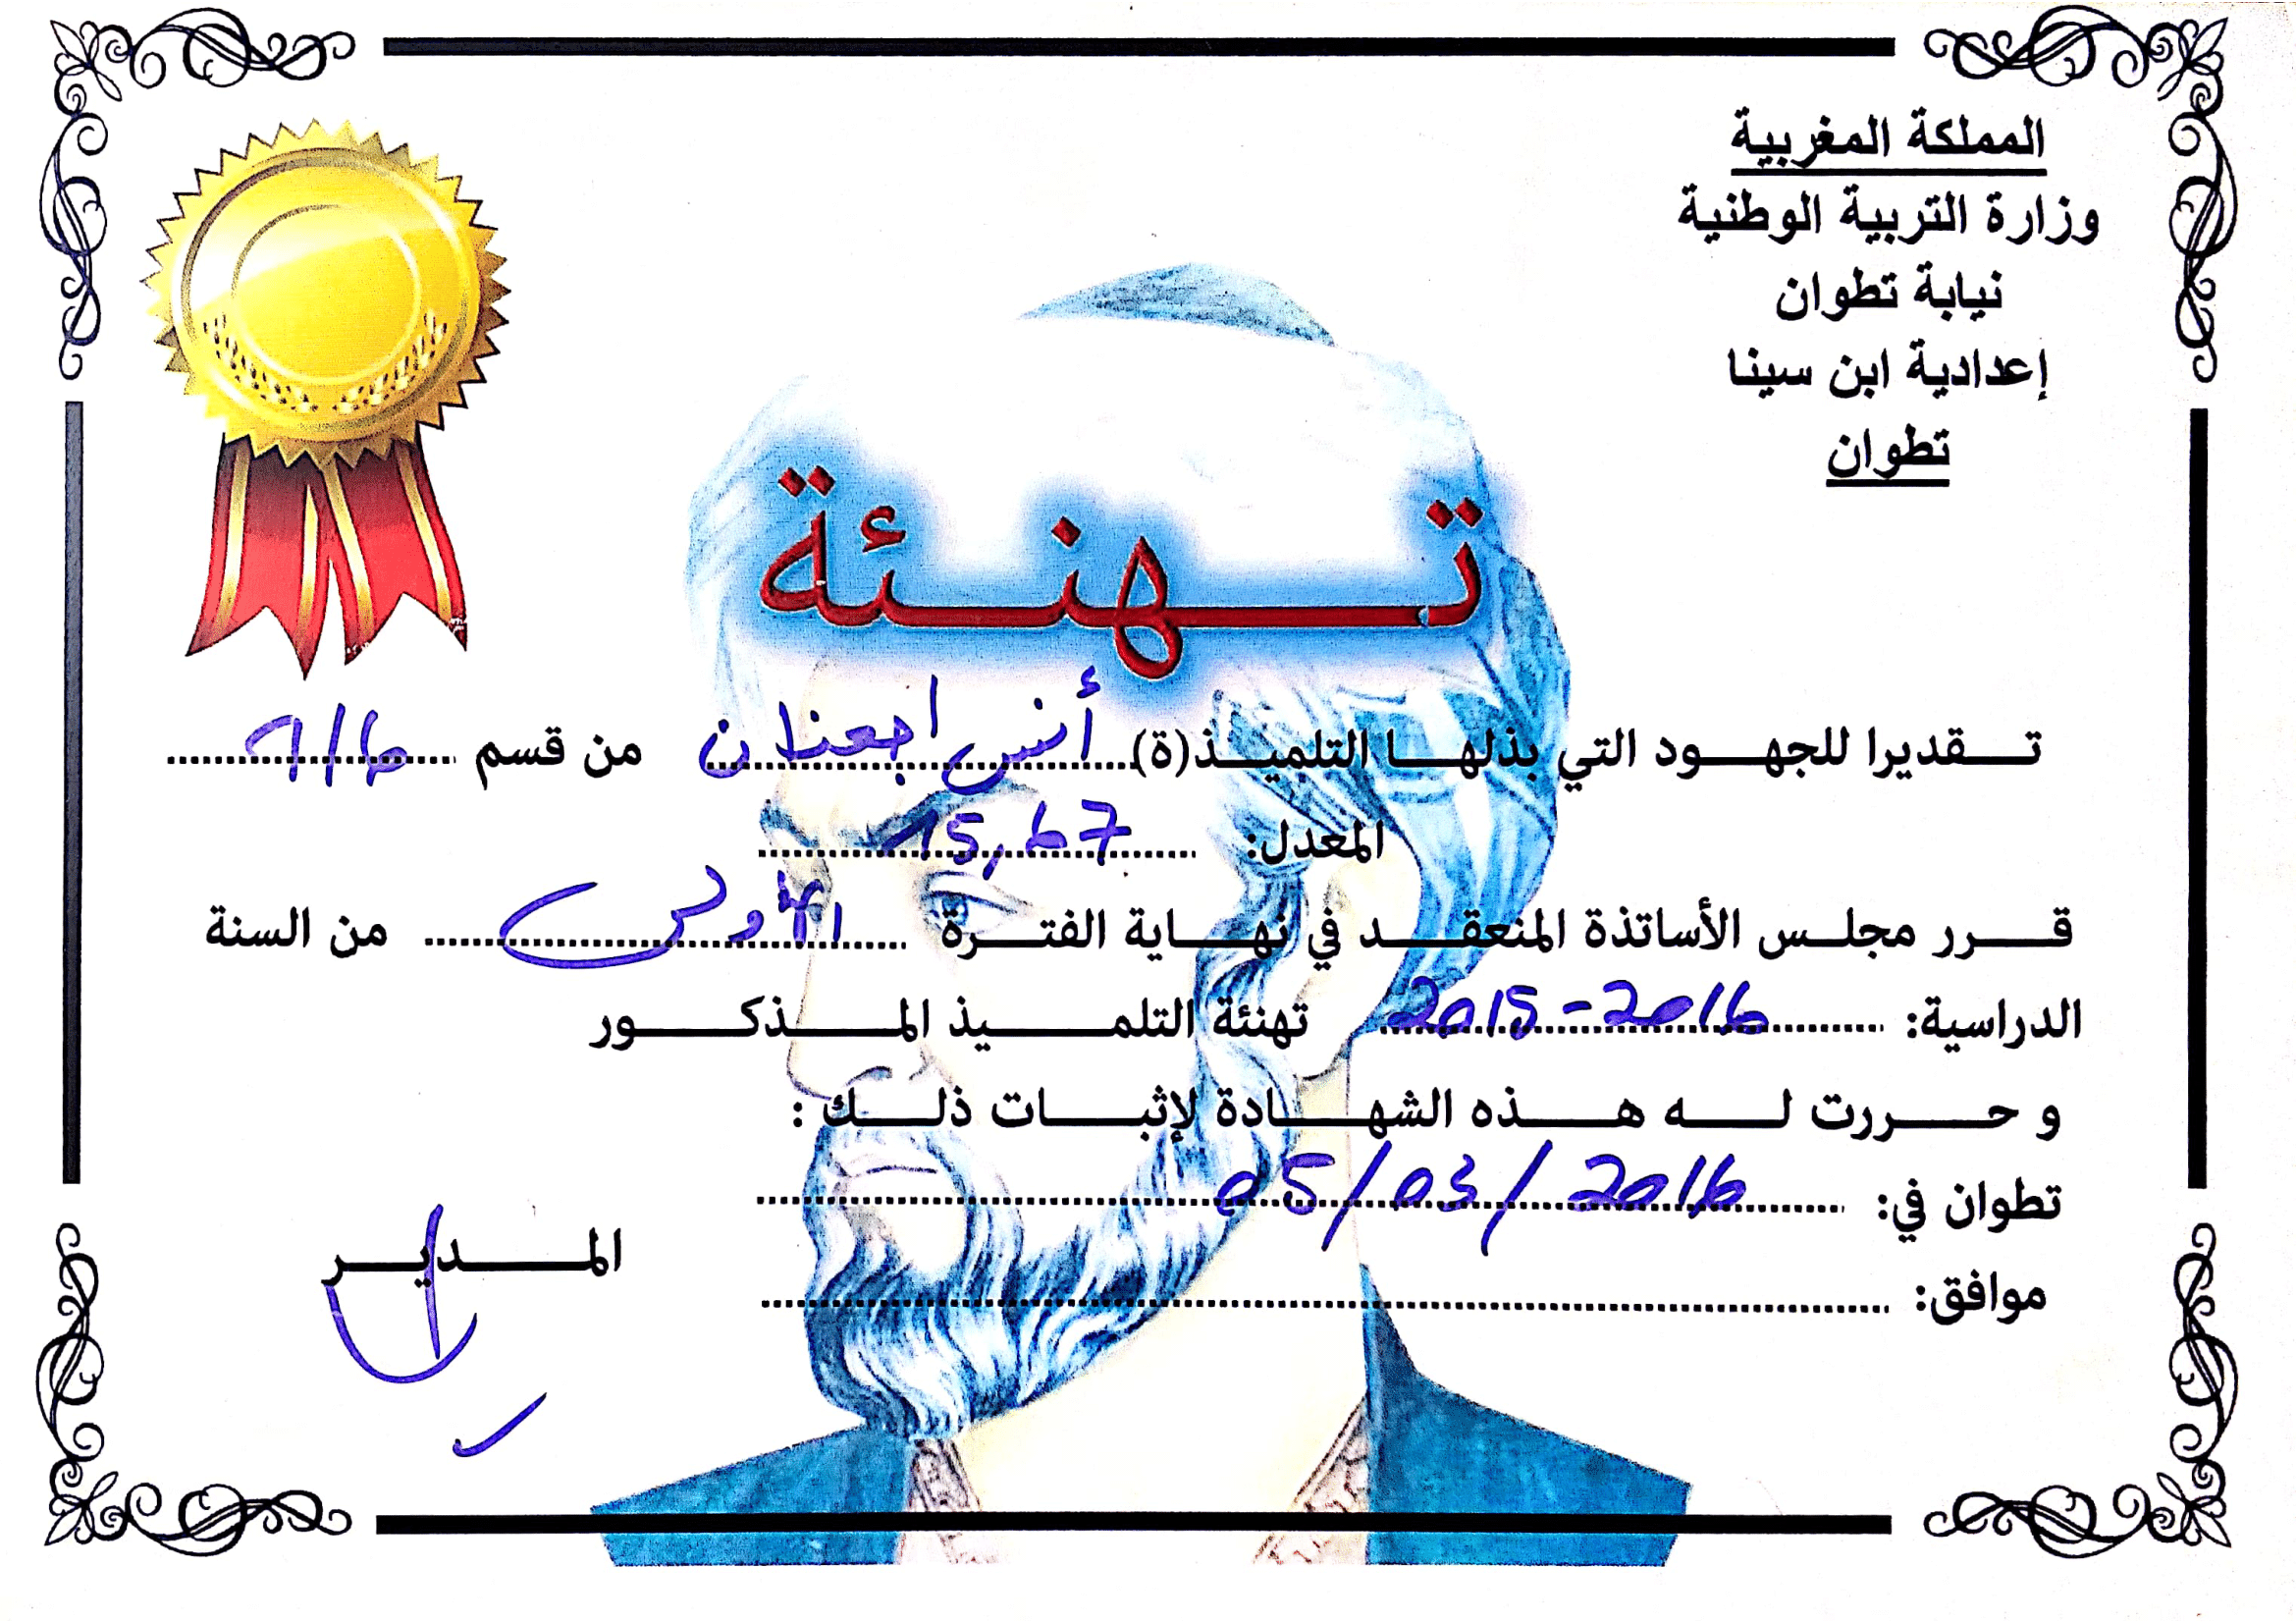 المملكة المغربية
وزارة التربية الوطنية
نيابة تطوان
إعدادية ابن سينا
تطوان
تهنئة
تقديرا للجهود التي بذلها التلميذ(ة) أنس اجعنان من قسم 1/6
المعدل: 15,67
قرر مجلس الأساتذة المنعقد في نهاية الفترة الأولى من السنة
الدراسية: 2015-2016 تهنئة التلميذ المذكور
و حررت له هذه الشهادة لإثبات ذلك :
تطوان في: 05/03/2016
موافق:
المدير